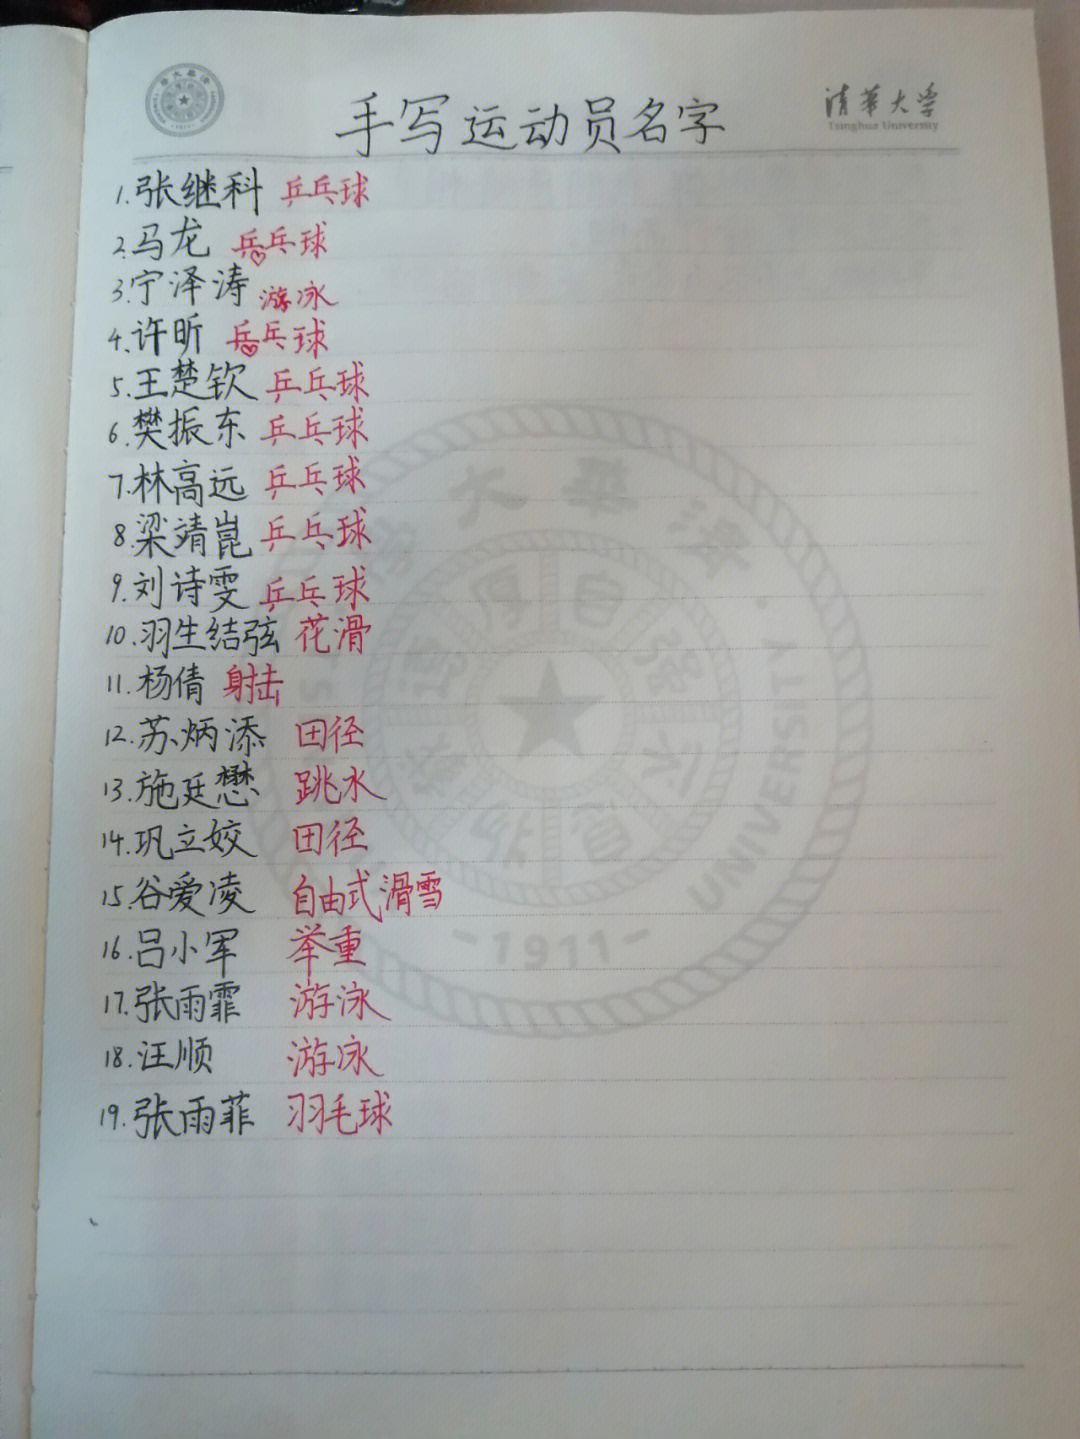 清華大学
Tsinghua University
手写运动员名字
1.张继科 乒乓球
2.马龙 乒乓球
3.宁泽涛 游泳
4.许昕 乒乓球
5.王楚钦 乒乓球
6.樊振东 乒乓球
7.林高远 乒乓球
8.梁靖崑 乒乓球
9.刘诗雯 乒乓球
10.羽生结弦 花滑
11.杨倩 射击
12.苏炳添 田径
13.施廷懋 跳水
14.巩立姣 田径
15.谷爱凌 自由式滑雪
16.吕小军 举重
17.张雨霏 游泳
18.汪顺 游泳
19.张雨菲 羽毛球
UNIVERSITY
-1911-